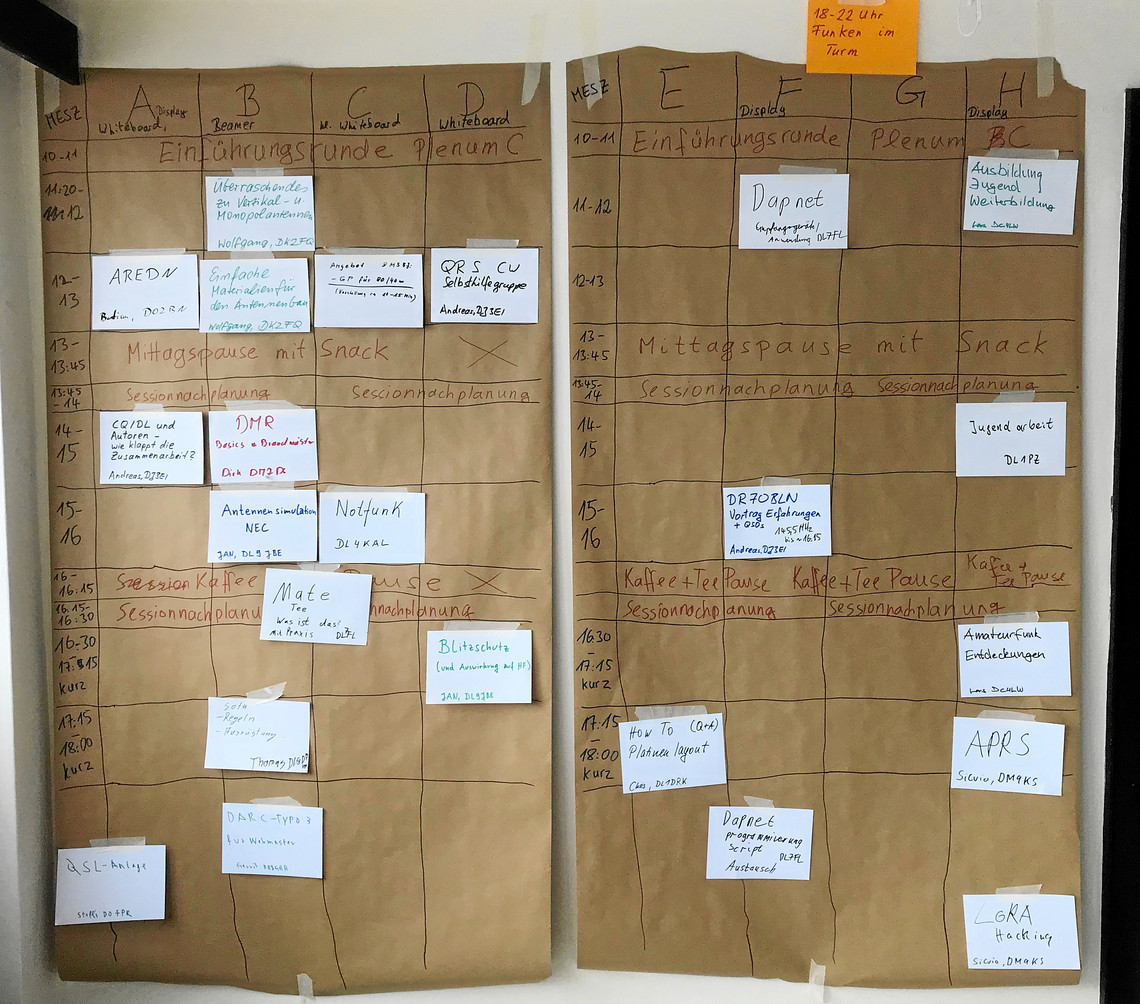 18-22 Uhr
Funken im
Turm
MESZ
A Display
Whiteboard,
B
Beamer
C
kl. Whiteboard
D
Whiteboard
10-11
Einführungsrunde Plenum C
11:20-
12
Überraschendes
zu Vertikal- u.
Monopolantennen
Wolfgang, DK2FQ
12-
13
AREDN
DO2BN
Einfache
Materialien für
den Antennenbau
Wolfgang, DK2FQ
Angebot
GP für 80/40m
QRS CW
Selbsthilfegruppe
Andreas, DJ3EI
13-
13:45
Mittagspause mit Snack
13:45
-14
Sessionnachplanung Sessionnachplanung
14-
15
CQ/DL und
Autoren -
wie klappt die
Zusammenarbeit?
Andreas, DJ3EI
DMR
Basics + Brandmeister
Dirk
15-
16
Antennensimulation
NEC
JAN, DL9JBE
Notfunk
DL4KAL
16-
16.15
Kaffee Pause
16.15-
16:30
Sessionnachplanu nachplanung
Mate
Tee
Was ist das?
mit Praxis DL7FL
16-30
-
17:15
kurz
Blitzschutz
(und Auswirkung auf HF)
JAN, DL9JBE
17:15
-
18:00
kurz
Sota
-Regeln
-Ausrüstung
Thomas
DARC-Typo 3
für Webmaster
QSL-Anlage
Steffi, DO7PR
MESZ
E
F
Display
G
H
Display
10-11
Einführungsrunde Plenum C
11-12
Dapnet
Empfangsgerät/
Anwendung DL7FL
Ausbildung
Jugend
Weiterbildung
Lars DC4LW
12-13
13-
13:45
Mittagspause mit Snack
13:45-
14
Sessionnachplanung Sessionnachplanung
14-
15
Jugendarbeit
DL1PZ
15-
16
DR70BLN
Vortrag Erfahrungen
+ QSOs 145,5 MHz
bis ~16.15
Andreas, DJ3EI
16-
16.15
Kaffee+Tee Pause Kaffee+Tee Pause Kaffee+
Tee Pause
16.15-
16:30
Sessionnachplanung Sessionnachplanung
16.30
-
17.15
kurz
Amateurfunk
Entdeckungen
Lars DC4LW
17.15
-
18:00
kurz
How To (Q+A)
Platinenlayout
DL1DRK
APRS
Silvio, DM9KS
Dapnet
programmierung
Script DL7FL
Austausch
LoRA
Hacking
Silvio, DM9KS